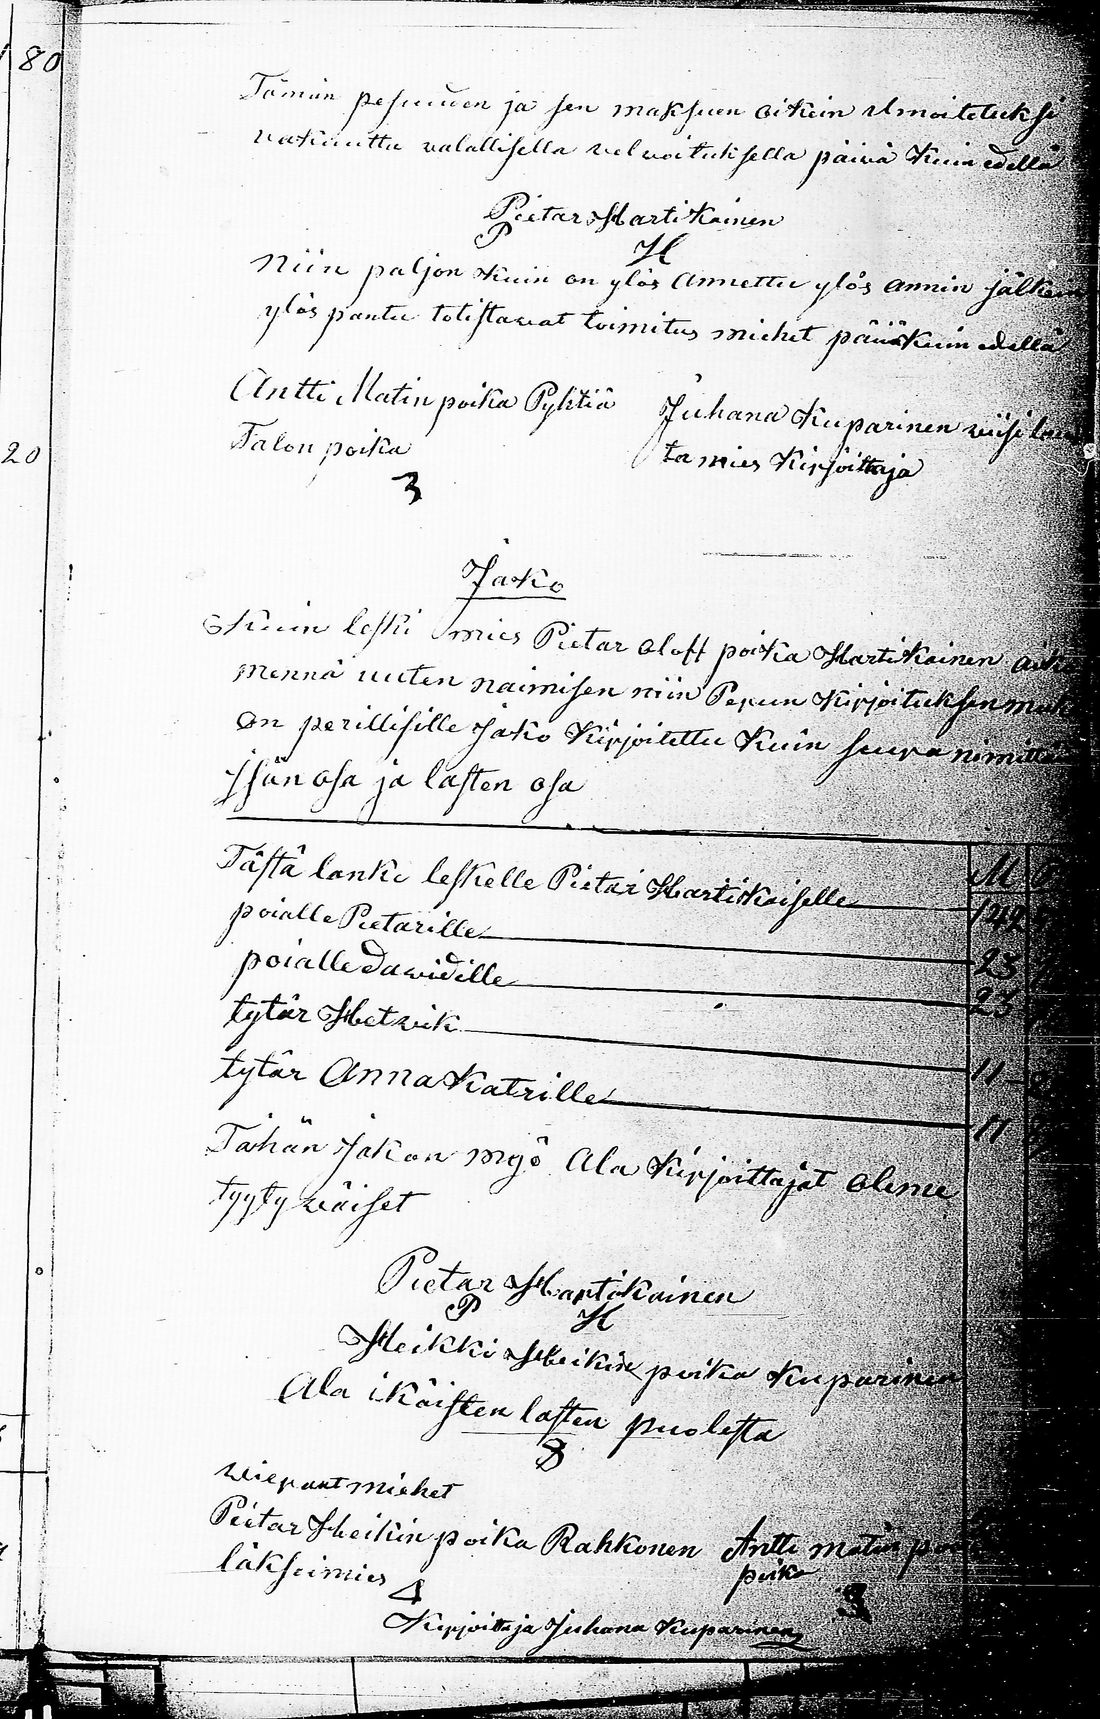 80
Tämän pesuuden ja sen maksuen oikein ilmoitetuksi
vakuutta valallisella velvoituksella päivä kuin edellä
Pietar Hartikainen
P H
Niin paljon kuin on ylös annettu ylös annin jälkeen
ylös pantu totistavat toimitus miehet päivä kuin edellä
Antti Matinpoika Pyhtiä
Talon poika
3
Juhana Kuparinen viisi lau
ta mies Kirjoittaja
20
Jako
Kuin leski mies Pietar Oloff poika Hartikainen aiko
mennä uuten naimisen niin Perun Kirjoituksen
on perillisille Jako Kirjoitettu kuin seura nimittäin
Isän osa ja lasten osa
M
Tästä lanke leskelle Pietari Hartikaiselle 142
poialle Pietarille 23
poialle Dawidille 23
tytär Hetvik 11
tytär Anna Katrille 11
Tähän Jakoon myö Ala Kirjoittajat oleme
tyytyväiset
Pietar Hartikainen
P H
Heikki Heikin poika Kuparinen
Ala ikäisten lasten puolesta
8
vierant miehet
Pietar Heikin poika Rahkonen
läksimies
4
Antti Matin
poika
3
Kirjoittaja Juhana Kuparinen